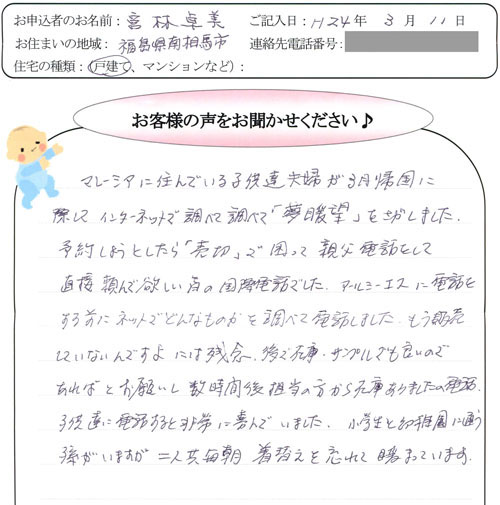 お申込者のお名前：宮林卓美 ご記入日：H24年 3月 11日
お住まいの地域：福島県南相馬市 連絡先電話番号：
住宅の種類：（戸建て、マンションなど）：
お客様の声をお聞かせください♪
マレーシアに住んでいる子供達夫婦が3月帰国に
際して インターネットで調べて調べて「夢暖望」をさがしました．
予約しようとしたら「売切」で困って 親父電話をして
直接頼んで欲しい旨の国際電話でした．アールシーエスに電話を
する前にネットでどんなものかを調べて電話しました．もう販売
していないんですよ には残念．後で在庫・サンプルでも良いので
あればとお願いし 数時間後担当の方から在庫ありましたの電話．
子供達に電話すると非常に喜んでいました．小学生と幼稚園に通う
孫がいますが 二人共毎朝 着替えを忘れて 暖まっています．